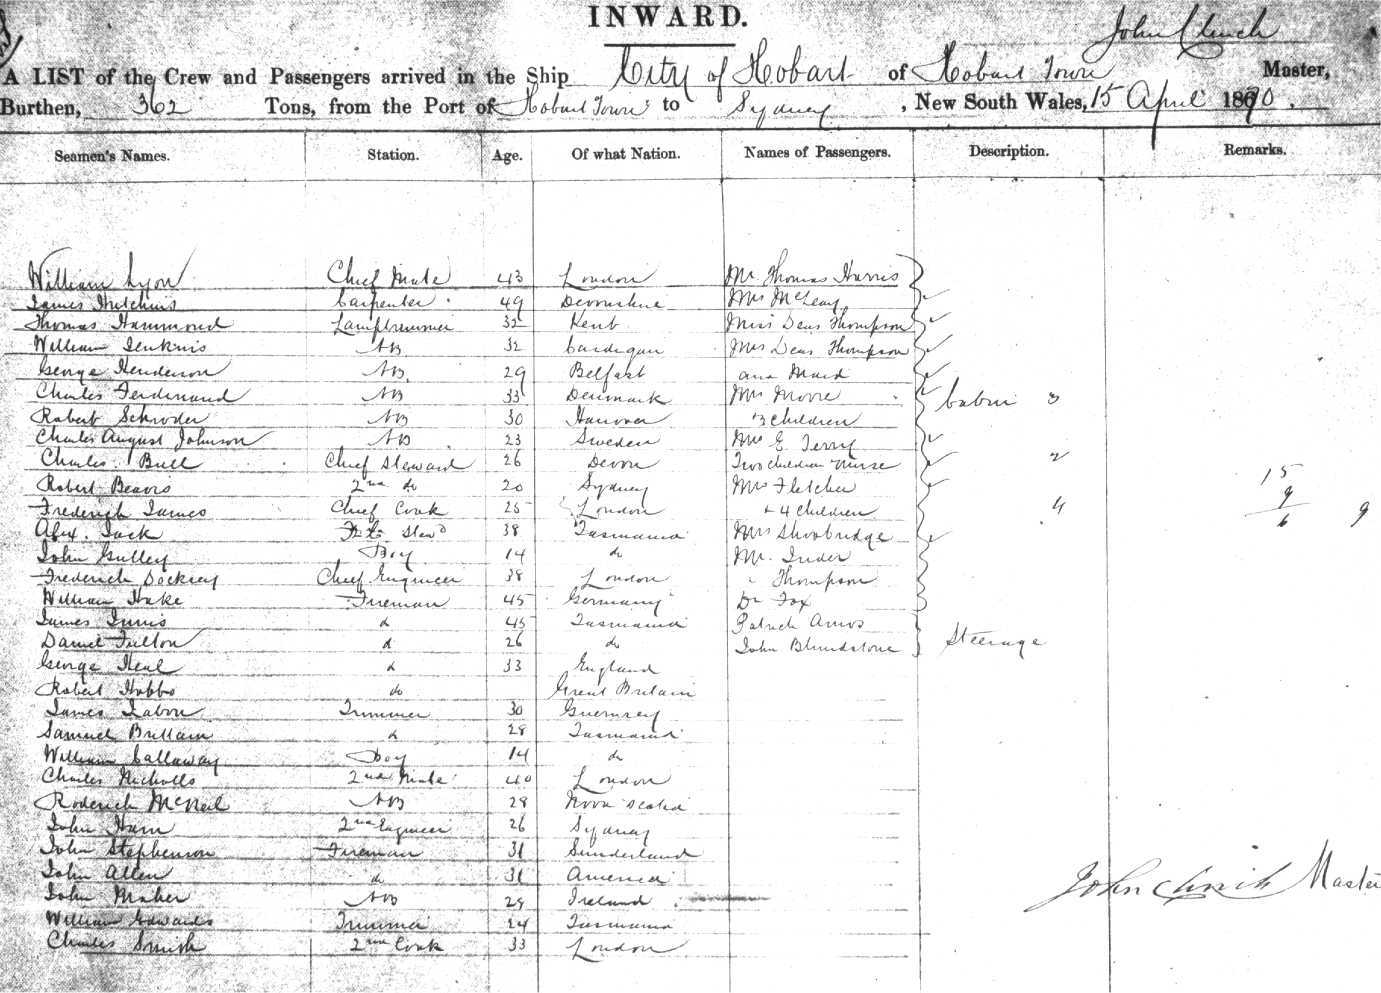 INWARD.
John Clinch
A LIST of the Crew and Passengers arrived in the Ship City of Hobart of Hobart Town Master,
Burthen, 362 Tons, from the Port of Hobart Town to Sydney, New South Wales, 15 April 1870.
Seamen's Names. Station. Age. Of what Nation. Names of Passengers. Description. Remarks.
William Lyon Chief Mate 43 London Mr Thomas Harris
James Hutchins Carpenter 49 Devonshire Mrs McLeay
Thomas Hammond Lamptrimmer 32 Kent Miss Deas Thompson
William Jenkins AB 32 Cardigan Mrs Deas Thompson
George Henderson AB 29 Belfast and Maid
Charles Ferdinand AB 33 Denmark Mrs Moore Cabin 3
Robert Schroder AB 30 Hanover 3 children
Charles August Johnson AB 23 Sweden Mrs E Terry
Charles Bull Chief Steward 26 Devon Two children Nurse 2
Robert Beavis 2nd do 20 Sydney Mrs Fletcher 15
Frederick James Chief Cook 25 London + 4 children 4 9 9
Alex. Jack Stewd 38 Tasmania Mrs Shoobridge 6
John Gulley Boy 14 do Mr. Inder
Frederick Dockrey Chief Engineer 38 London " Thompson
William Hake Fireman 45 Germany Dr Fox
James Innis d 45 Tasmania Patrick Amos
Daniel Fulton d 26 do John Blundstone Steerage
George Heal d 33 England
Robert Hobbs do Great Britain
James Labon Trimmer 30 Guernsey
Samuel Brittain d 28 Tasmania
William Callaway Boy 14 do
Charles Nicholls 2nd Mate 40 London
Roderick McNeil AB 28 Nova Scotia
John Ham 2nd Engineer 26 Sydney
John Stephenson Fireman 31 Sunderland
John Allen d 31 America
John Maher AB 29 Ireland John Clinch Master
William Edwards Trimmer 24 Tasmania
Charles Smith 2nd Cook 33 London